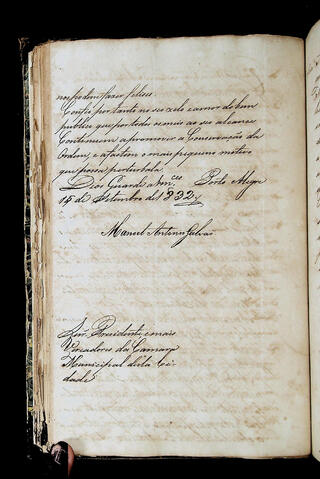 nos podem fazer felizes.
Confio por tanto no seo zelo e amor do bem
publico que por todos os meios ao seo alcance
Continuem a promover a Conservação da
Ordem, e afastem o mais pequeno motivo
que possa perturbala.
Deos Guarde a Vm.ces Porto Alegre
15 de Setembro de 1832
Manoel Antonio Galvão
Snr. Presidente e mais
Vereadores da Camara
Municipal desta Ci-
dade